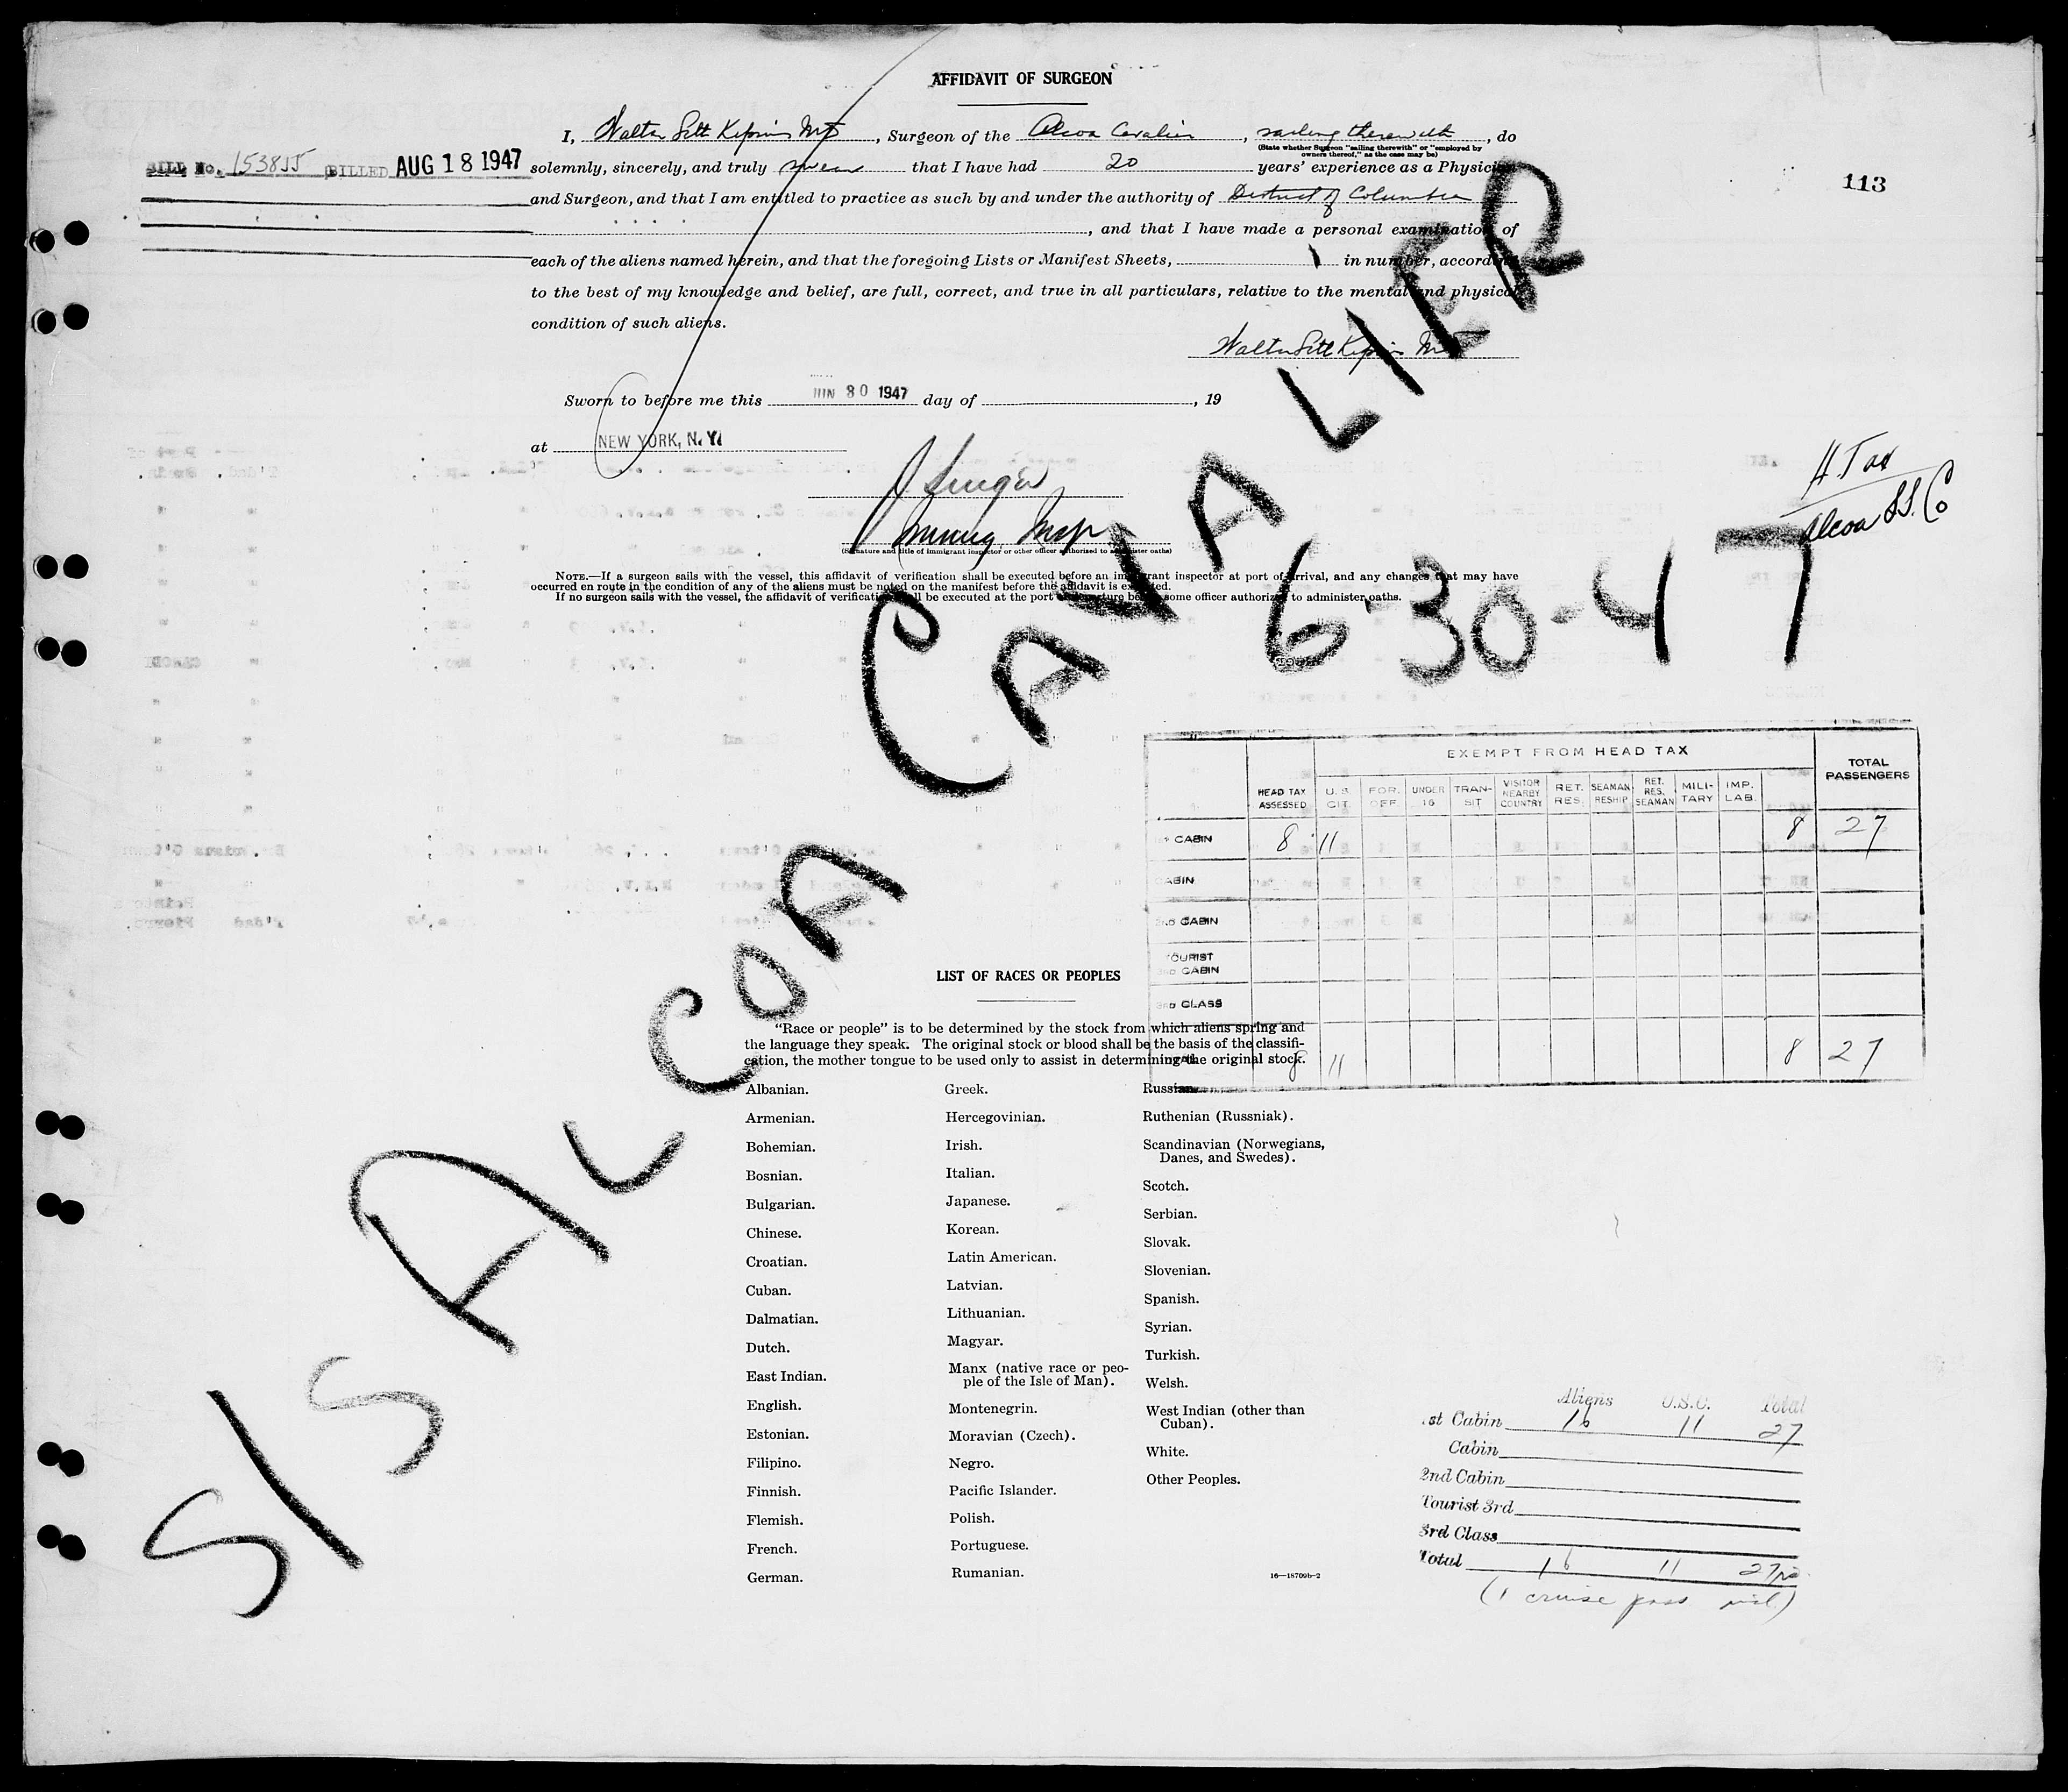 AFFIDAVIT OF SURGEON
I, Walter, Surgeon of the Alcoa Cavalier, sailing therewith, do
(State whether Surgeon "sailing therewith" or "employed by
owners thereof," as the case may be)
BILL No. 153855 BILLED AUG 18 1947
solemnly, sincerely, and truly swear that I have had 20 years' experience as a Physician
113
and Surgeon, and that I am entitled to practice as such by and under the authority of District of Columbia
, and that I have made a personal examination of
each of the aliens named herein, and that the foregoing Lists or Manifest Sheets, 1 in number, according
to the best of my knowledge and belief, are full, correct, and true in all particulars, relative to the mental and physical
condition of such aliens.
Walter
Sworn to before me this JUN 30 1947 day of , 19
at NEW YORK, N.Y.
H. Tax
Alcoa S.S. Co
(Signature and title of immigrant inspector or other officer authorized to administer oaths)
NOTE.—If a surgeon sails with the vessel, this affidavit of verification shall be executed before an immigrant inspector at port of arrival, and any changes that may have
occurred en route in the condition of any of the aliens must be noted on the manifest before the affidavit is executed.
If no surgeon sails with the vessel, the affidavit of verification shall be executed at the port of departure before some officer authorized to administer oaths.
S/S ALCOA CAVALIER
6-30-47
EXEMPT FROM HEAD TAX
HEAD TAX ASSESSED U.S. CIT. FOR. OFF. UNDER 16 TRANSIT VISITOR NEARBY COUNTRY RET. RES. SEAMAN RESHIP. RET. RES. SEAMAN MILITARY IMP. LAB. TOTAL PASSENGERS
CABIN 8 11 8 27
CABIN
2ND CABIN
TOURIST
3RD CABIN
3RD CLASS
8 11 8 27
LIST OF RACES OR PEOPLES
"Race or people" is to be determined by the stock from which aliens spring and
the language they speak. The original stock or blood shall be the basis of the classifi-
cation, the mother tongue to be used only to assist in determining the original stock.
Albanian.
Armenian.
Bohemian.
Bosnian.
Bulgarian.
Chinese.
Croatian.
Cuban.
Dalmatian.
Dutch.
East Indian.
English.
Estonian.
Filipino.
Finnish.
Flemish.
French.
German.
Greek.
Hercegovinian.
Irish.
Italian.
Japanese.
Korean.
Latin American.
Latvian.
Lithuanian.
Magyar.
Manx (native race or peo-
ple of the Isle of Man).
Montenegrin.
Moravian (Czech).
Negro.
Pacific Islander.
Polish.
Portuguese.
Rumanian.
Russian.
Ruthenian (Russniak).
Scandinavian (Norwegians,
Danes, and Swedes).
Scotch.
Serbian.
Slovak.
Slovenian.
Spanish.
Syrian.
Turkish.
Welsh.
West Indian (other than
Cuban).
White.
Other Peoples.
16—18709b-2
Aliens U.S.C. Total
1st Cabin 16 11 27
Cabin
2nd Cabin
Tourist 3rd
3rd Class
Total 16 11 27
(1 cruise pass incl.)